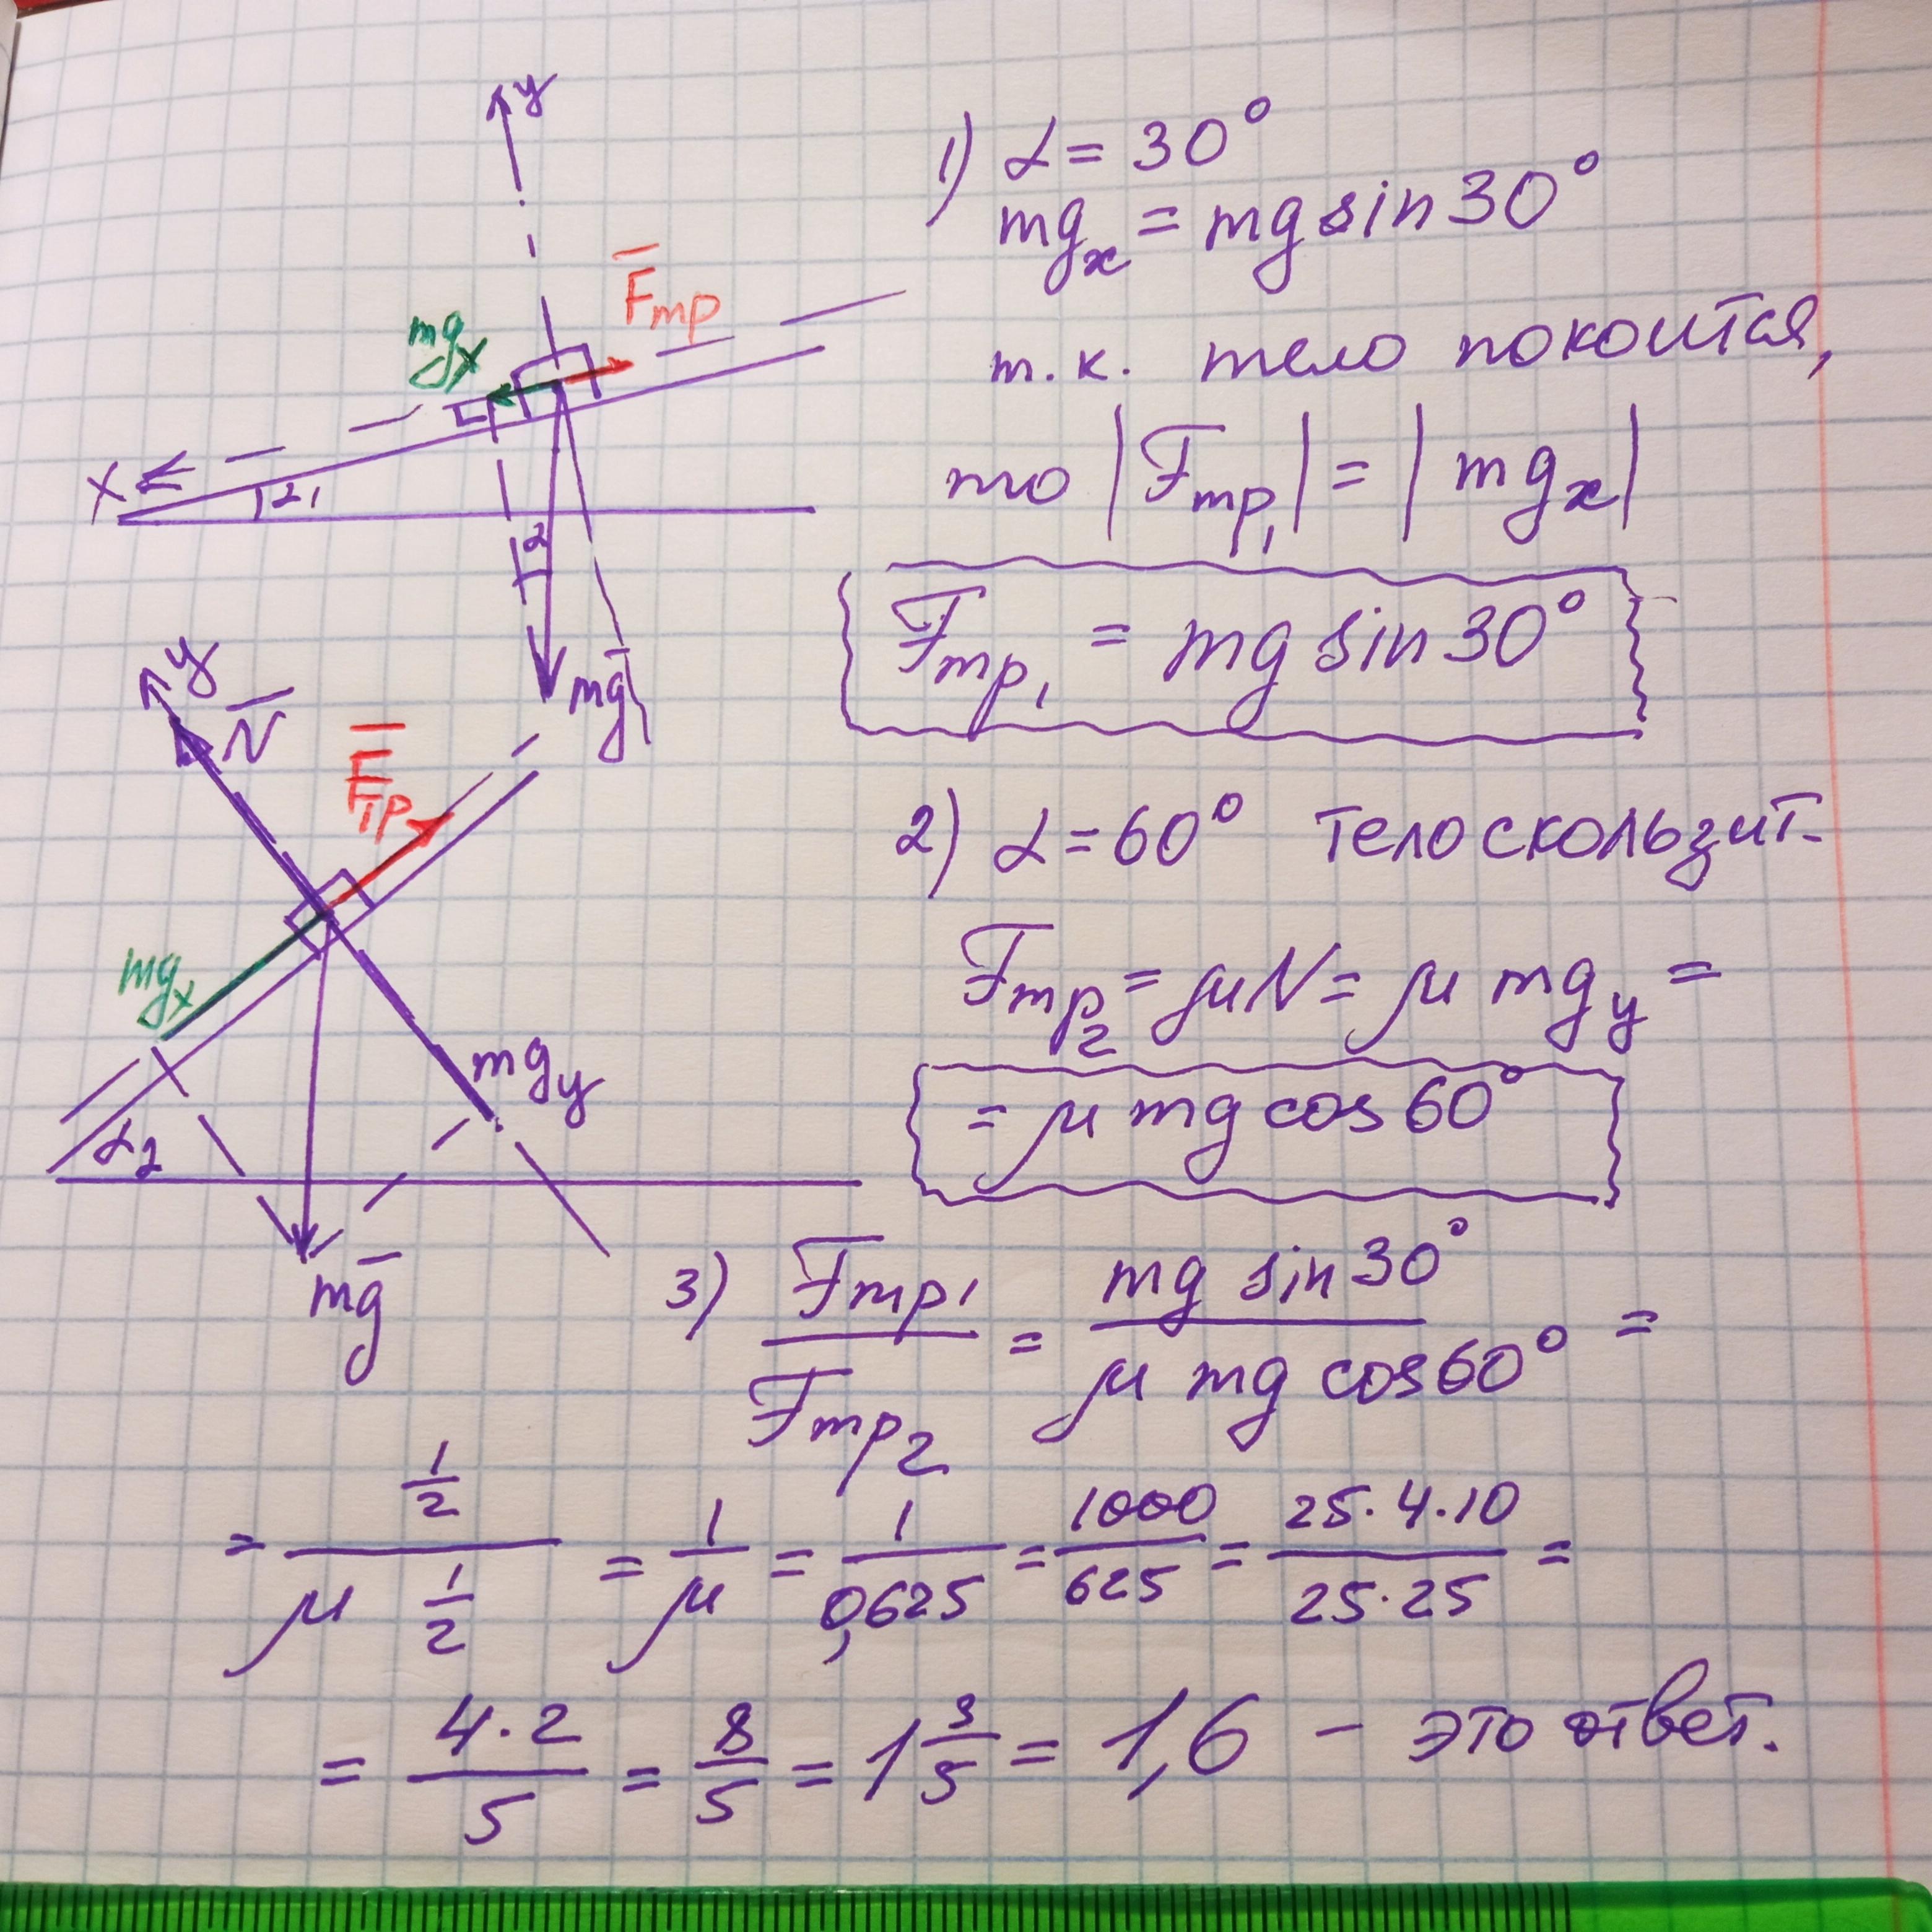 y
F̅тр
mgx
x
α1
α
mg̅
y
N̅
F̅тр
mgx
mgy
α2
mg̅
1) α = 30°
mgx = mg sin 30°
т.к. тело покоится,
то |Fтр1| = |mgx|
Fтр1 = mg sin 30°
2) α = 60° тело скользит.
Fтр2 = μN = μ mgy =
= μ mg cos 60°
3) Fтр1/Fтр2 = mg sin 30°/μ mg cos 60° =
= (1/2)/(μ 1/2) = 1/μ = 1/0,625 = 1000/625 = 25·4·10/25·25 =
= 4·2/5 = 8/5 = 1 3/5 = 1,6 – это ответ.